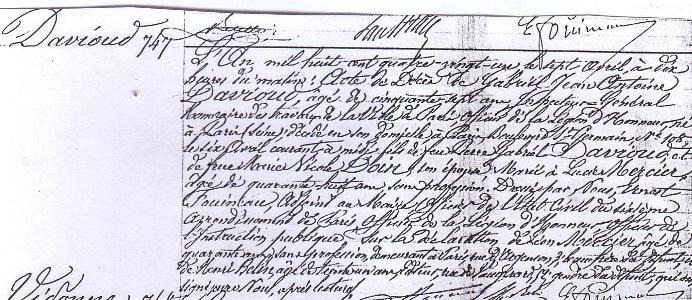 Davioud 747
L'An mil huit cent quatre vingt un le sept Avril, à dix
heures du matin: Acte de Décès de Gabriel Jean Antoine
Davioud, âgé de cinquante sept ans Inspecteur Général
honoraire des travaux de la Ville de Paris Officier de la Légion d'Honneur, né
à Paris (Seine) décédé en son domicile à Paris Boulevard St Germain No
le six Avril courant à midi; fils de feu Pierre Gabriel Davioud, et
de feue Marie Nicole Doin, son épouse, Marié à Mercier,
âgée de quarante huit ans sans profession. Dressé par Nous, Ernest
Adjoint au Maire, Officier de l'Etat Civil du sixième
Arrondissement de Paris, Officier de la Légion d'Honneur, officier de
l'Instruction publique Sur la déclaration de Léon Mercier, âgé de
quarante ans sans profession demeurant à Paris rue
de Henri Belin, âgé de trente un ans gendre du défunt, qui ont
signé avec Nous, après lecture